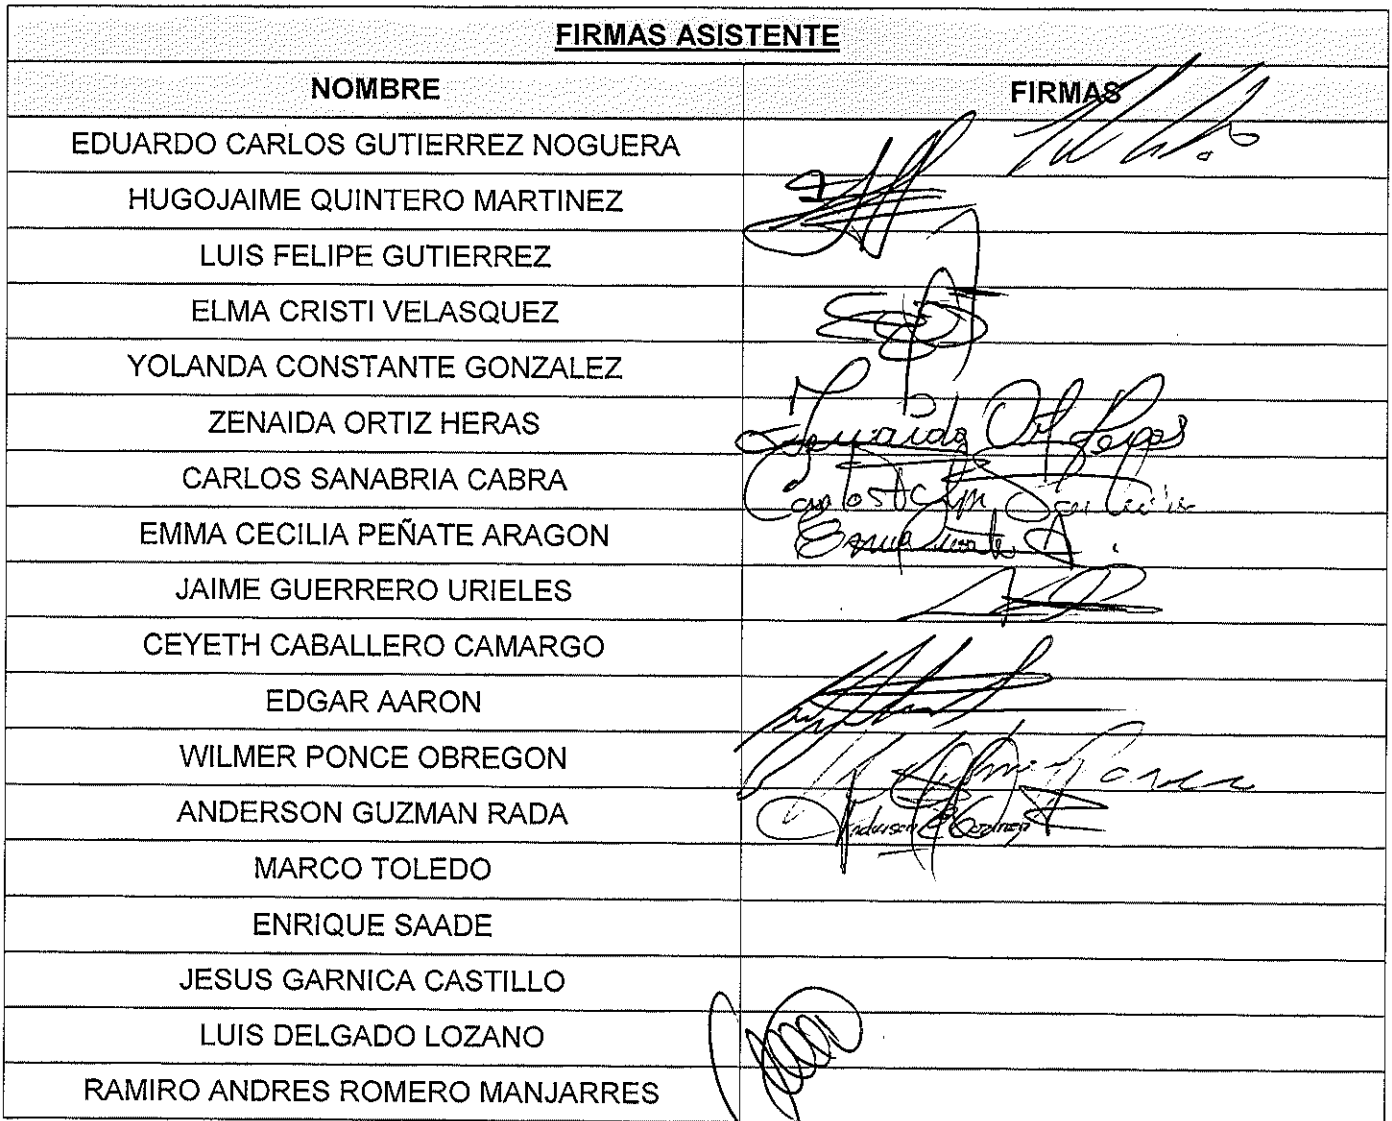 FIRMAS ASISTENTE
NOMBRE FIRMAS
EDUARDO CARLOS GUTIERREZ NOGUERA
HUGOJAIME QUINTERO MARTINEZ
LUIS FELIPE GUTIERREZ
ELMA CRISTI VELASQUEZ
YOLANDA CONSTANTE GONZALEZ
ZENAIDA ORTIZ HERAS
CARLOS SANABRIA CABRA Carlos
EMMA CECILIA PEÑATE ARAGON Emma A.
JAIME GUERRERO URIELES
CEYETH CABALLERO CAMARGO
EDGAR AARON
WILMER PONCE OBREGON
ANDERSON GUZMAN RADA Anderson
MARCO TOLEDO
ENRIQUE SAADE
JESUS GARNICA CASTILLO
LUIS DELGADO LOZANO
RAMIRO ANDRES ROMERO MANJARRES